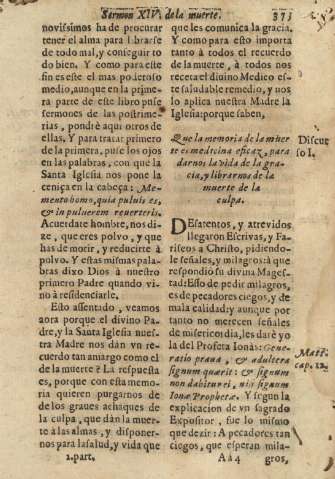 Sermon XIV. de la muerte. 373
novissimos ha de procurar
tener el alma para l brarse
de todo mal, y conseguir to
do bien. Y como para este
fin es este el mas poderoso
medio, aunque en la prime-
ra parte de este libro puse
sermones de las postrime-
rias, pondrè aqui otros de
ellas. Y para tratar primero
de la primera, puse los ojos
en las palabras, con que la
Santa Iglesia nos pone la
ceniça en la cabeça: Me-
mento homo, quia puluis es,
& in puluerem reuerteris.
Acuerdate hombre, nos di-
ze, que eres polvo, y que
has de morir, y reducirte à
polvo. Y estas mismas pala-
bras dixo Dios à nuestro
primero Padre quando vi-
no à residenciarle.
Esto assentado, veamos
aora porque el divino Pa-
dre, y la Santa Iglesia nues-
tra Madre nos dàn vn re-
cuerdo tan amargo como el
de la muerte? La respuesta
es, porque con esta memo-
ria quieren purgarnos de
de los graues achaques de
la culpa, que dàn la muer-
te à las almas, y disponer-
nos para la salud, y vida que
2. part.
que les comunica la gracia.
Y como para esto importa
tanto à todos el recuerdo
de la muerte, à todos nos
receta el divino Medico es-
te saludable remedio, y nos
lo aplica nuestra Madre la
Iglesia: porque saben,
Que la memoria de la muer
te es medicina eficaz, para
darnos la vida de la gra-
cia, y librarnos de la
muerte de la
culpa.
Discur
so I.
DEsatentos, y atrevidos
llegaron Escrivas, y Fa-
riseos à Christo, pidiendo-
le señales, y milagros: à que
respondiò su divina Mages-
tad: Esso de pedir milagros,
es de pecadores ciegos, y de
mala calidad: y aunque por
tanto no merecen señales
de misericordia, les darè yo
la del Profeta Ionàs: Gene-
ratio praua, & adultera
signum quærit: & signum
non dabitur ei, nisi signum
Ionæ Prophetæ. Y segun la
explicacion de vn sagrado
Expositor, fue lo mismo
que dezir: A pecadores tan
ciegos, que esperan mila-
Matt.
cap. 12.
Aa 4 gros,